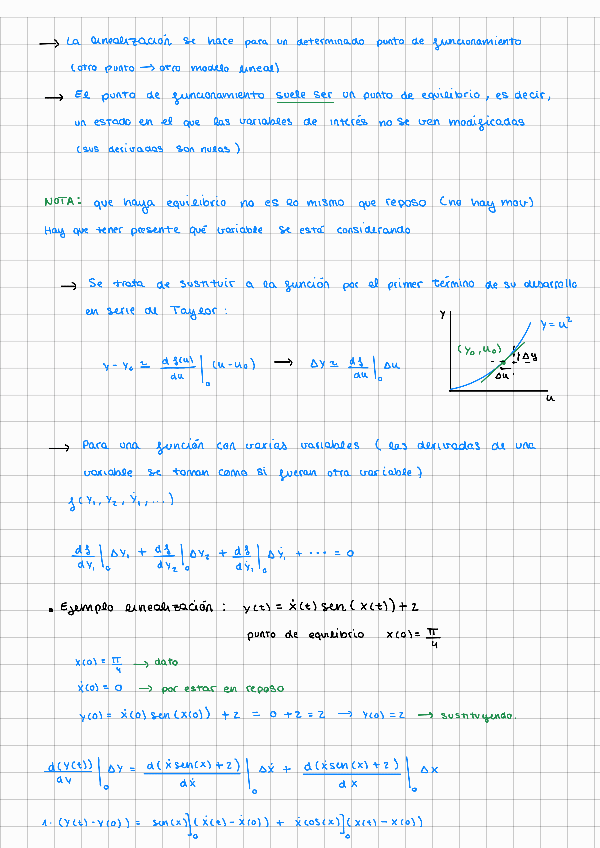 → La linealización se hace para un determinado punto de funcionamiento
(otro punto → otro modelo lineal)
→ El punto de funcionamiento suele ser un punto de equilibrio, es decir,
un estado en el que las variables de interés no se ven modificadas
(sus derivadas son nulas)
NOTA: que haya equilibrio no es lo mismo que reposo (no hay mov)
Hay que tener presente qué variable se está considerando
→ Se trata de sustituir a la función por el primer término de su desarrollo
en serie de Taylor:
y - y₀ ≃ df(u)/du |₀ (u-u₀) → Δy ≃ df/du |₀ Δu
y
y = u²
(y₀, u₀)
Δy
Δu
u
→ Para una función con varias variables (las derivadas de una
variable se toman como si fueran otra variable)
f(y₁, y₂, ẏ₁, ...)
df/dy₁ |₀ Δy₁ + df/dy₂ |₀ Δy₂ + df/dẏ₁ |₀ Δẏ₁ + ... = 0
• Ejemplo linealización: y(t) = ẋ(t) sen(x(t)) + 2
punto de equilibrio x(0) = π/4
x(0) = π/4 → dato
ẋ(0) = 0 → por estar en reposo
y(0) = ẋ(0) sen(x(0)) + 2 = 0 + 2 = 2 → y(0) = 2 → sustituyendo.
d(y(t))/dy |₀ Δy = d(ẋ sen(x) + 2)/dẋ |₀ Δẋ + d(ẋ sen(x) + 2)/dx |₀ Δx
1. (y(t) - y(0)) = sen(x)]₀ (ẋ(t) - ẋ(0)) + ẋ cos(x)]₀ (x(t) - x(0))